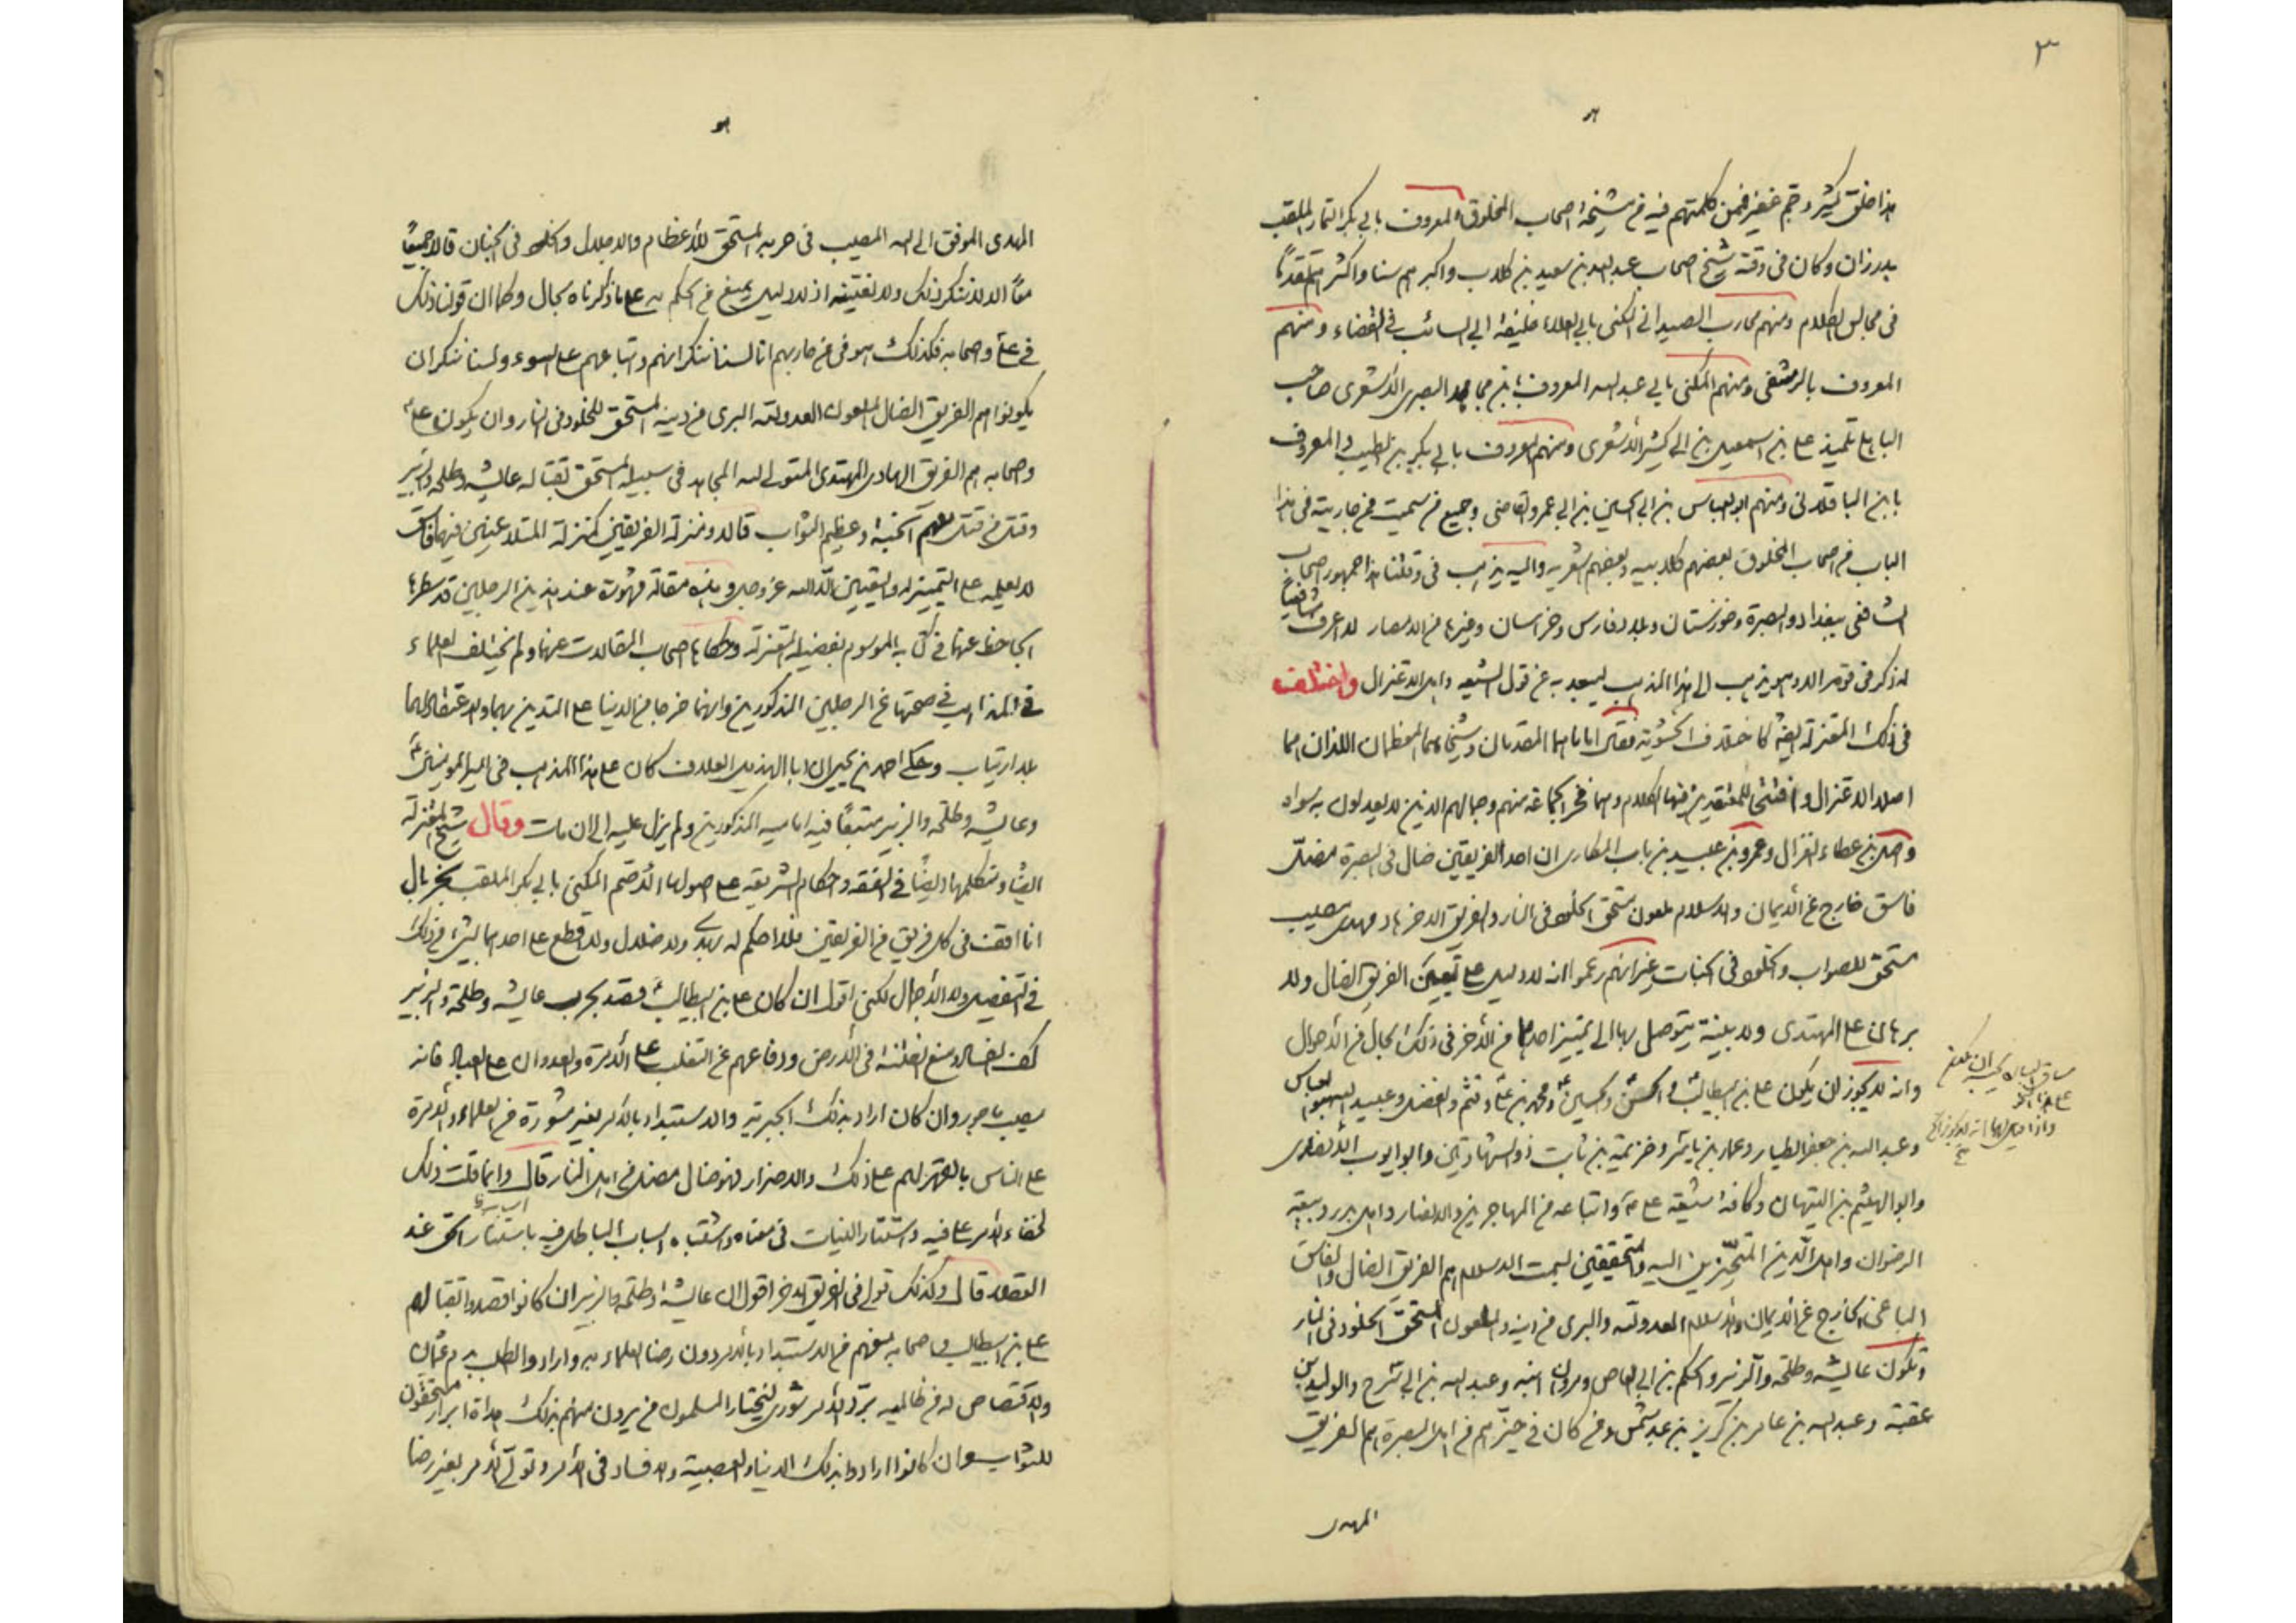 ٣
هذا خلق كثير وجم غفير فممن كلمتهم فيه من مشيخة اصحاب المخلوق المعروف بابي بكر التمار الملقب
بدرزان وكان في وقته شيخ اصحاب عبد الله بن سعيد بن كلاب واكبرهم سنا واكثرهم تقدما
في مجالس الكلام ومنهم محارب الصيداني المكنى بابي العلاء خليفة ابي السائب في القضاء ومنهم
المعروف بالدمشقي ومنهم المكنى بابي عبد الله المعروف بابن مجاهد البصري الاشعري صاحب
الباهلي تلميذ علي بن اسمعيل بن ابي بشر الاشعري ومنهم المعروف بابي بكر بن الطيب المعروف
بابن الباقلاني ومنهم ابو العباس بن ابي الحسين بن ابي عمرو القاضي وجميع من سميت ممن جاريته في هذا
الباب من اصحاب المخلوق بعضهم كلابيه وبعضهم اشعريه واليه يذهب في وقتنا هذا جمهور اصحاب
الشافعي ببغداد والبصرة وخوزستان وبلاد فارس وخراسان وغيرها من الامصار لا اعرف شافعيا
له ذكر في قومه الا وهو يذهب الى هذا المذهب ليبعد به عن قول الشيعه واهل الاعتزال واختلفت
في ذلك المعتزلة ايضا كاختلاف الحشوية فقال اماماهما المقدمان وشيخاهما المعظمان اللذان هما
اصلا الاعتزال وافتتحا للمعتقدين فيها الكلام وهما فخر الجماعة منهم وجمالهم الذين لا يعدلون به سواه
واصل بن عطاء الغزال وعمرو بن عبيد بن باب المكاري ان احد الفريقين ضال في البصرة مضل
فاسق خارج عن الايمان والاسلام ملعون مستحق الخلود في النار والفريق الاخر هاد مهدي مصيب
مستحق للصواب والخلود في الجنات غير انهم زعموا انه لا دليل على تعيين الفريق الضال ولا
برهان على المهتدي ولا بينة يتوصل بها الى تمييز احدهما من الآخر في ذلك بحال من الاحوال
وانه لا يجوز ان يكون علي بن ابيطالب ع والحسن والحسين ع ومحمد بن علي وقثم والفضل وعبيد الله بنوا العباس
وعبد الله بن جعفر الطيار وعمار بن ياسر وخزيمة بن ثابت ذو الشهادتين وابو ايوب الانصاري
وابو الهيثم بن التيهان وكافة شيعة علي ع واتباعه من المهاجرين والانصار واهل بدر وبيعة
الرضوان واهل الدين المتحيزين اليه والمتحققين بسمت الاسلام هم الفريق الضال والفاسق
الباغي الخارج عن الايمان والاسلام العدو لله والبري من دينه والملعون المستحق الخلود في النار
وتكون عايشه وطلحه والزبير والحكم بن ابي العاص ومروان ابنه وعبد الله بن ابي سرح والوليد بن
عقبة وعبد الله بن عامر بن كريز بن عبد شمس ومن كان في حيزهم من اهل البصرة هم الفريق
المهدي
المهدي الموفق الى الله المصيب في حربه المستحق للاعظام والاجلال والخلود في الجنان قالا جميعا
معا الا لا ننكر ذلك ولا نفتيه اذ لا دليل يمنع من الحكم به على ما ذكرناه بحال وكما ان قولنا ذلك
في علي واصحابه فكذلك هو في من حاربهم انا لسنا ننكر انهم واتباعهم على السوء ولسنا ننكر ان
يكونوا هم الفريق الضال الملعون العدو لله البري من دينه المستحق للخلود في النار وان يكون علي ع
واصحابه هم الفريق الهادي المهتدي المتولي لله المجاهد في سبيله المستحق بقتاله عايشه وطلحه والزبير
وقتل من قتل منهم الجنة وعظيم الثواب قالا ومنزلة الفريقين كمنزلة المتلاعنين فيهما فاسق
لا يعلمه على التمييز له والتعيين الا الله عز وجل وهذه مقالة مشهورة عند هذين الرجلين قد سطرها
الجاحظ عنهما في كتابه الموسوم بفضيلة المعتزلة وحكاها اصحاب المقالات عنهما ولم يختلف العلماء
في المذاهب في صحتها عن الرجلين المذكورين وانهما خرجا من الدنيا على التدين بهما والاعتقاد لهما
بلا ارتياب وحكى احمد بن يحيى ان ابا الهذيل العلاف كان على هذا المذهب في امير المؤمنين ع
وعايشه وطلحه والزبير متبعا فيه اماميه المذكورين ولم يزل عليه الى ان مات وقال شيخ المعتزلة
ايضا ومتكلمها ايضا في الفقه واحكام الشريعه على اصولها الاصم المكنى بابي بكر الملقب بخربال
انا اقف في كل فريق من الفريقين فلا احكم له بهدى ولا ضلال ولا اقطع على احدهما بشئ من ذلك
في التفصيل ولا الاجمال لكني اقول ان كان علي بن ابيطالب ع قصد بحرب عايشه وطلحة والزبير
كف الفساد ومنع الفتنة في الارض ودفاعهم عن التغلب على الامرة والعدوان على العباد فانه
مصيب ماجور وان كان اراد بذلك الجبرية والاستبداد بالامر بغير مشورة من العلماء والامرة
على الناس بالقهر لهم على ذلك والاضرار فهو ضال مضل من اهل النار قال وانما قلت ذلك
لخفاء الامر علي فيه واستتار النيات في معناه واشتباه اسباب الباطل فيه باستتار الحق عند
العقد قال وكذلك قولي في الفريق الآخر اقول ان عايشه وطلحه والزبير ان كانوا قصدوا بقتالهم
علي بن ابيطالب واصحابه منعهم من الاستبداد بالامر دون رضا العلماء به وارادوا الطلب بدم عثمان
والاقتصاص له من ظالميه برد الامر شورى ليختار المسلمون من يرون منهم بذلك هداة ابرار مستحقون
للثواب وان كانوا ارادوا بذلك الدنيا والعصبية والافساد في الامر وتولي الامر بغير رضا